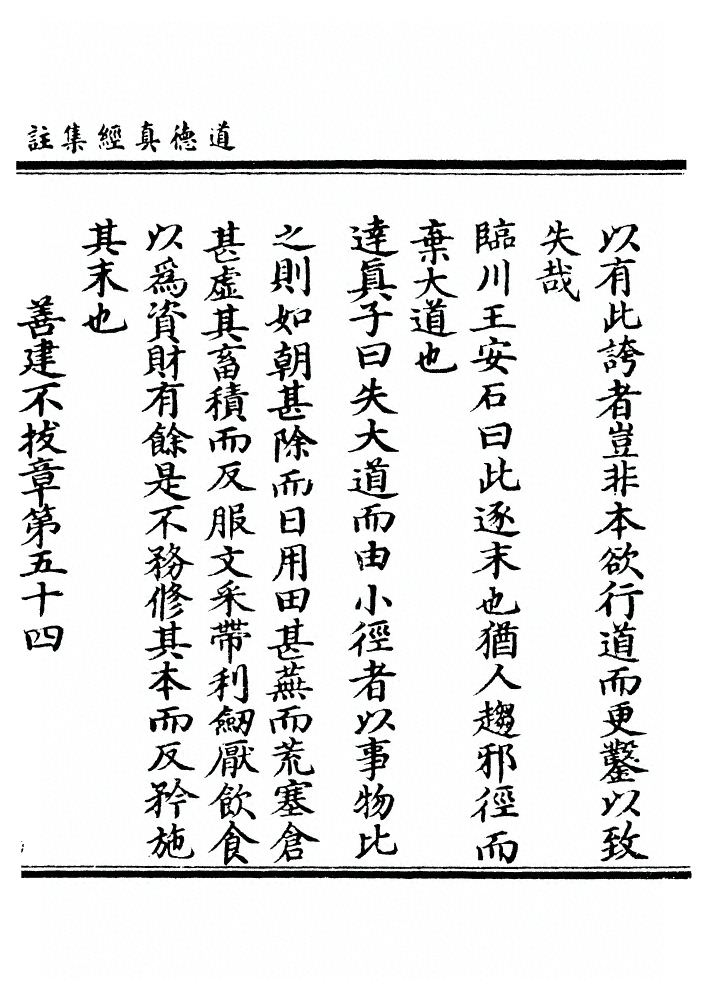 道德真經集註
以有此誇者豈非本欲行道而更鑿以致
失哉
臨川王安石曰此逐末也猶人趨邪徑而
棄大道也
達眞子曰失大道而由小徑者以事物比
之則如朝甚除而日用田甚蕪而荒塞倉
甚虛其畜積而反服文采帶利劒厭飲食
以爲資財有餘是不務修其本而反矜施
其末也
善建不拔章第五十四